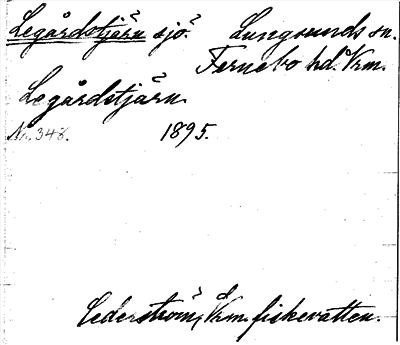 Legårdstjärn sjö. Lungsunds sn.
Fernebo hd. Vrm.
Legårdstjärn.
No. 348. 1895.
Cederström, Vrm. fiskevatten.